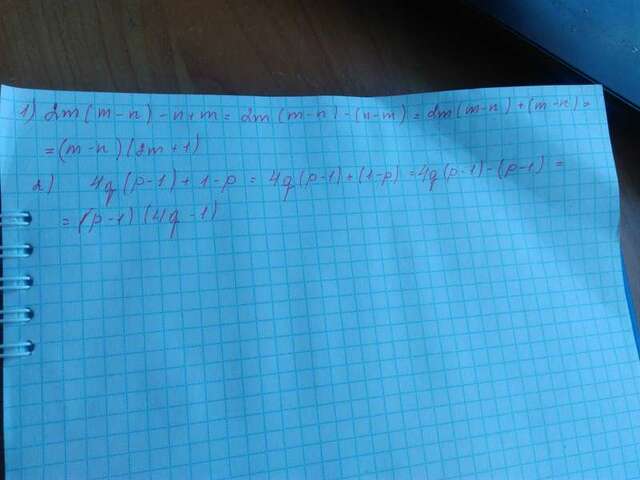 1) 2m(m-n)-n+m = 2m(m-n)-(n-m) = 2m(m-n)+(m-n) =
=(m-n)(2m+1)
2) 4q(p-1)+1-p = 4q(p-1)+(1-p) = 4q(p-1)-(p-1) =
= (p-1)(4q-1)